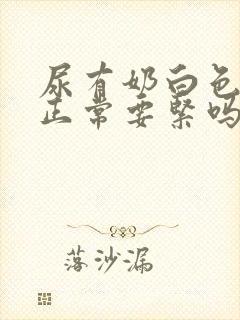 尿有奶白色
正常要紧吗
落沙漏